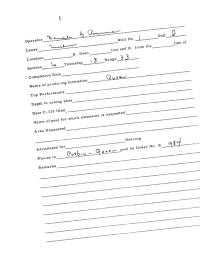 1
Operator
Lease Well No. 1 Unit
Location ft. from line and ft. from the line of
Section 6 Township 18 Range 33
Completion Date
Name of producing formation Queen
Top Perforations
Depth to casing shoe
Date C-123 filed
Name of pool for which extension is requested
Area Requested
Advertised for Hearing
Placed in Corbin-Queen pool by Order No. R- 984
Remarks